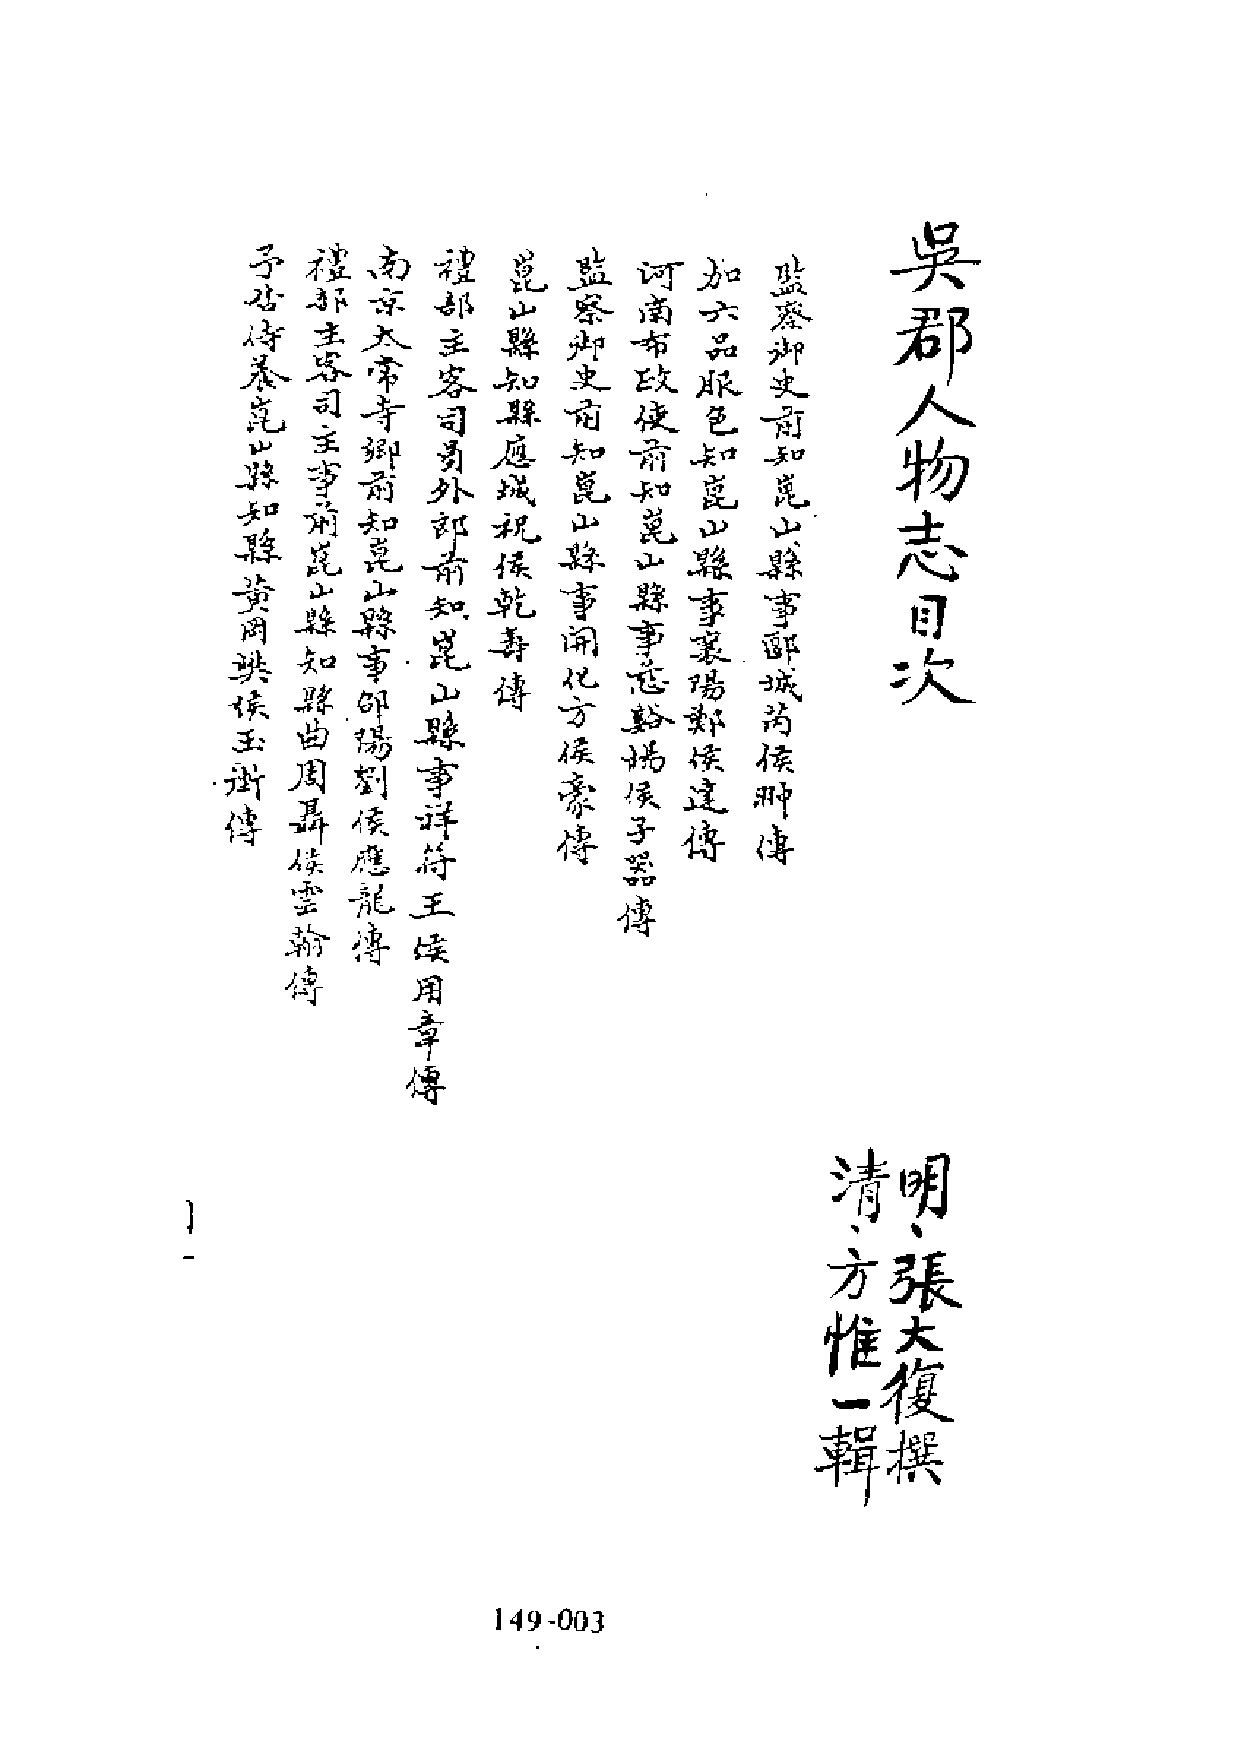 吳郡人物志目次
明、張大復撰
清、方惟一輯
監察御史前知崑山縣事郾城芮侯翀傳
加六品服色知崑山縣事襄陽鄭侯達傳
河南布政使前知崑山縣事慈谿楊侯子器傳
監察御史前知崑山縣事開化方侯豪傳
崑山縣知縣應城祝侯乾壽傳
禮部主客司員外郎前知崑山縣事祥符王侯用章傳
南京太常寺卿前知崑山縣事郃陽劉侯應龍傳
禮部主客司主事前崑山縣知縣曲周聶侯雲翰傳
予告侍養崑山縣知縣黄岡樊侯玉衡傳
149-003